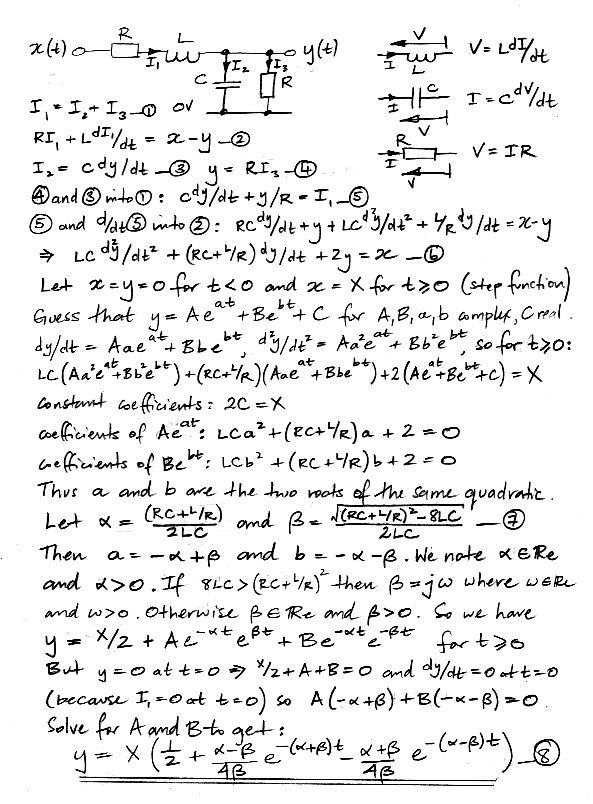 R L
x(t) I₁ y(t)
C I₂ I₃ R
0V
V
I L V = L dI/dt
I C V I = C dV/dt
R I V V = IR
I₁ = I₂ + I₃ —①
RI₁ + L dI₁/dt = x - y —②
I₂ = C dy/dt —③ y = RI₃ —④
④ and ③ into ①: C dy/dt + y/R = I₁ —⑤
⑤ and d/dt ⑤ into ②: RC dy/dt + y + LC d²y/dt² + L/R dy/dt = x-y
⇒ LC d²y/dt² + (RC+L/R) dy/dt + 2y = x —⑥
Let x=y=0 for t<0 and x = X for t⩾0 (step function)
Guess that y = Ae^at + Be^bt + C for A,B,a,b complex, C real.
dy/dt = Aae^at + Bbe^bt, d²y/dt² = Aa²e^at + Bb²e^bt, so for t⩾0:
LC(Aa²e^at+Bb²e^bt)+(RC+L/R)(Aae^at+Bbe^bt)+2(Ae^at+Be^bt+C) = X
Constant coefficients: 2C = X
coefficients of Ae^at: LCa² + (RC+L/R)a + 2 = 0
Coefficients of Be^bt: LCb² + (RC+L/R)b + 2 = 0
Thus a and b are the two roots of the same quadratic.
Let α = (RC+L/R)/2LC and β = √((RC+L/R)²-8LC)/2LC —⑦
Then a = -α+β and b = -α-β. We note α∈Re
and α>0. If 8LC > (RC+L/R)² then β = jω where ω∈Re
and ω>0. Otherwise β∈Re and β>0. So we have
y = X/2 + Ae^-αt e^βt + Be^-αt e^-βt for t⩾0
But y=0 at t=0 ⇒ X/2+A+B=0 and dy/dt=0 at t=0
(because I₁=0 at t=0) so A(-α+β)+B(-α-β)=0.
Solve for A and B to get:
y = X (1/2 + (α-β)/4β e^-(α+β)t - (α+β)/4β e^-(α-β)t) —⑧